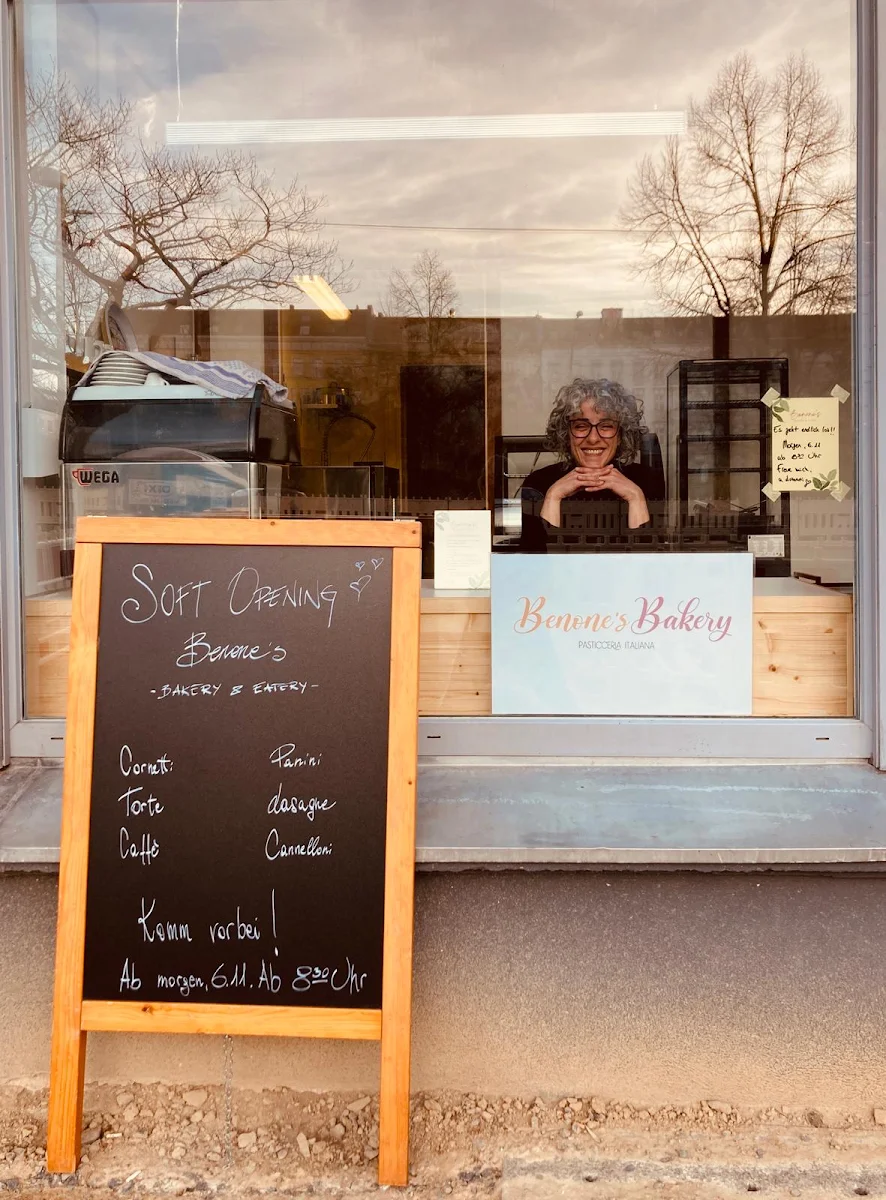 WEGA
Es geht endlich los!!
Morgen, 6.11
ab 8³⁰ Uhr
SOFT OPENING
Benone's
-BAKERY & EATERY-
Cornetti Panini
Torte Lasagne
Caffè Cannelloni
Komm vorbei!
Ab morgen, 6.11. Ab 8³⁰ Uhr
Benone's Bakery
PASTICCERIA ITALIANA